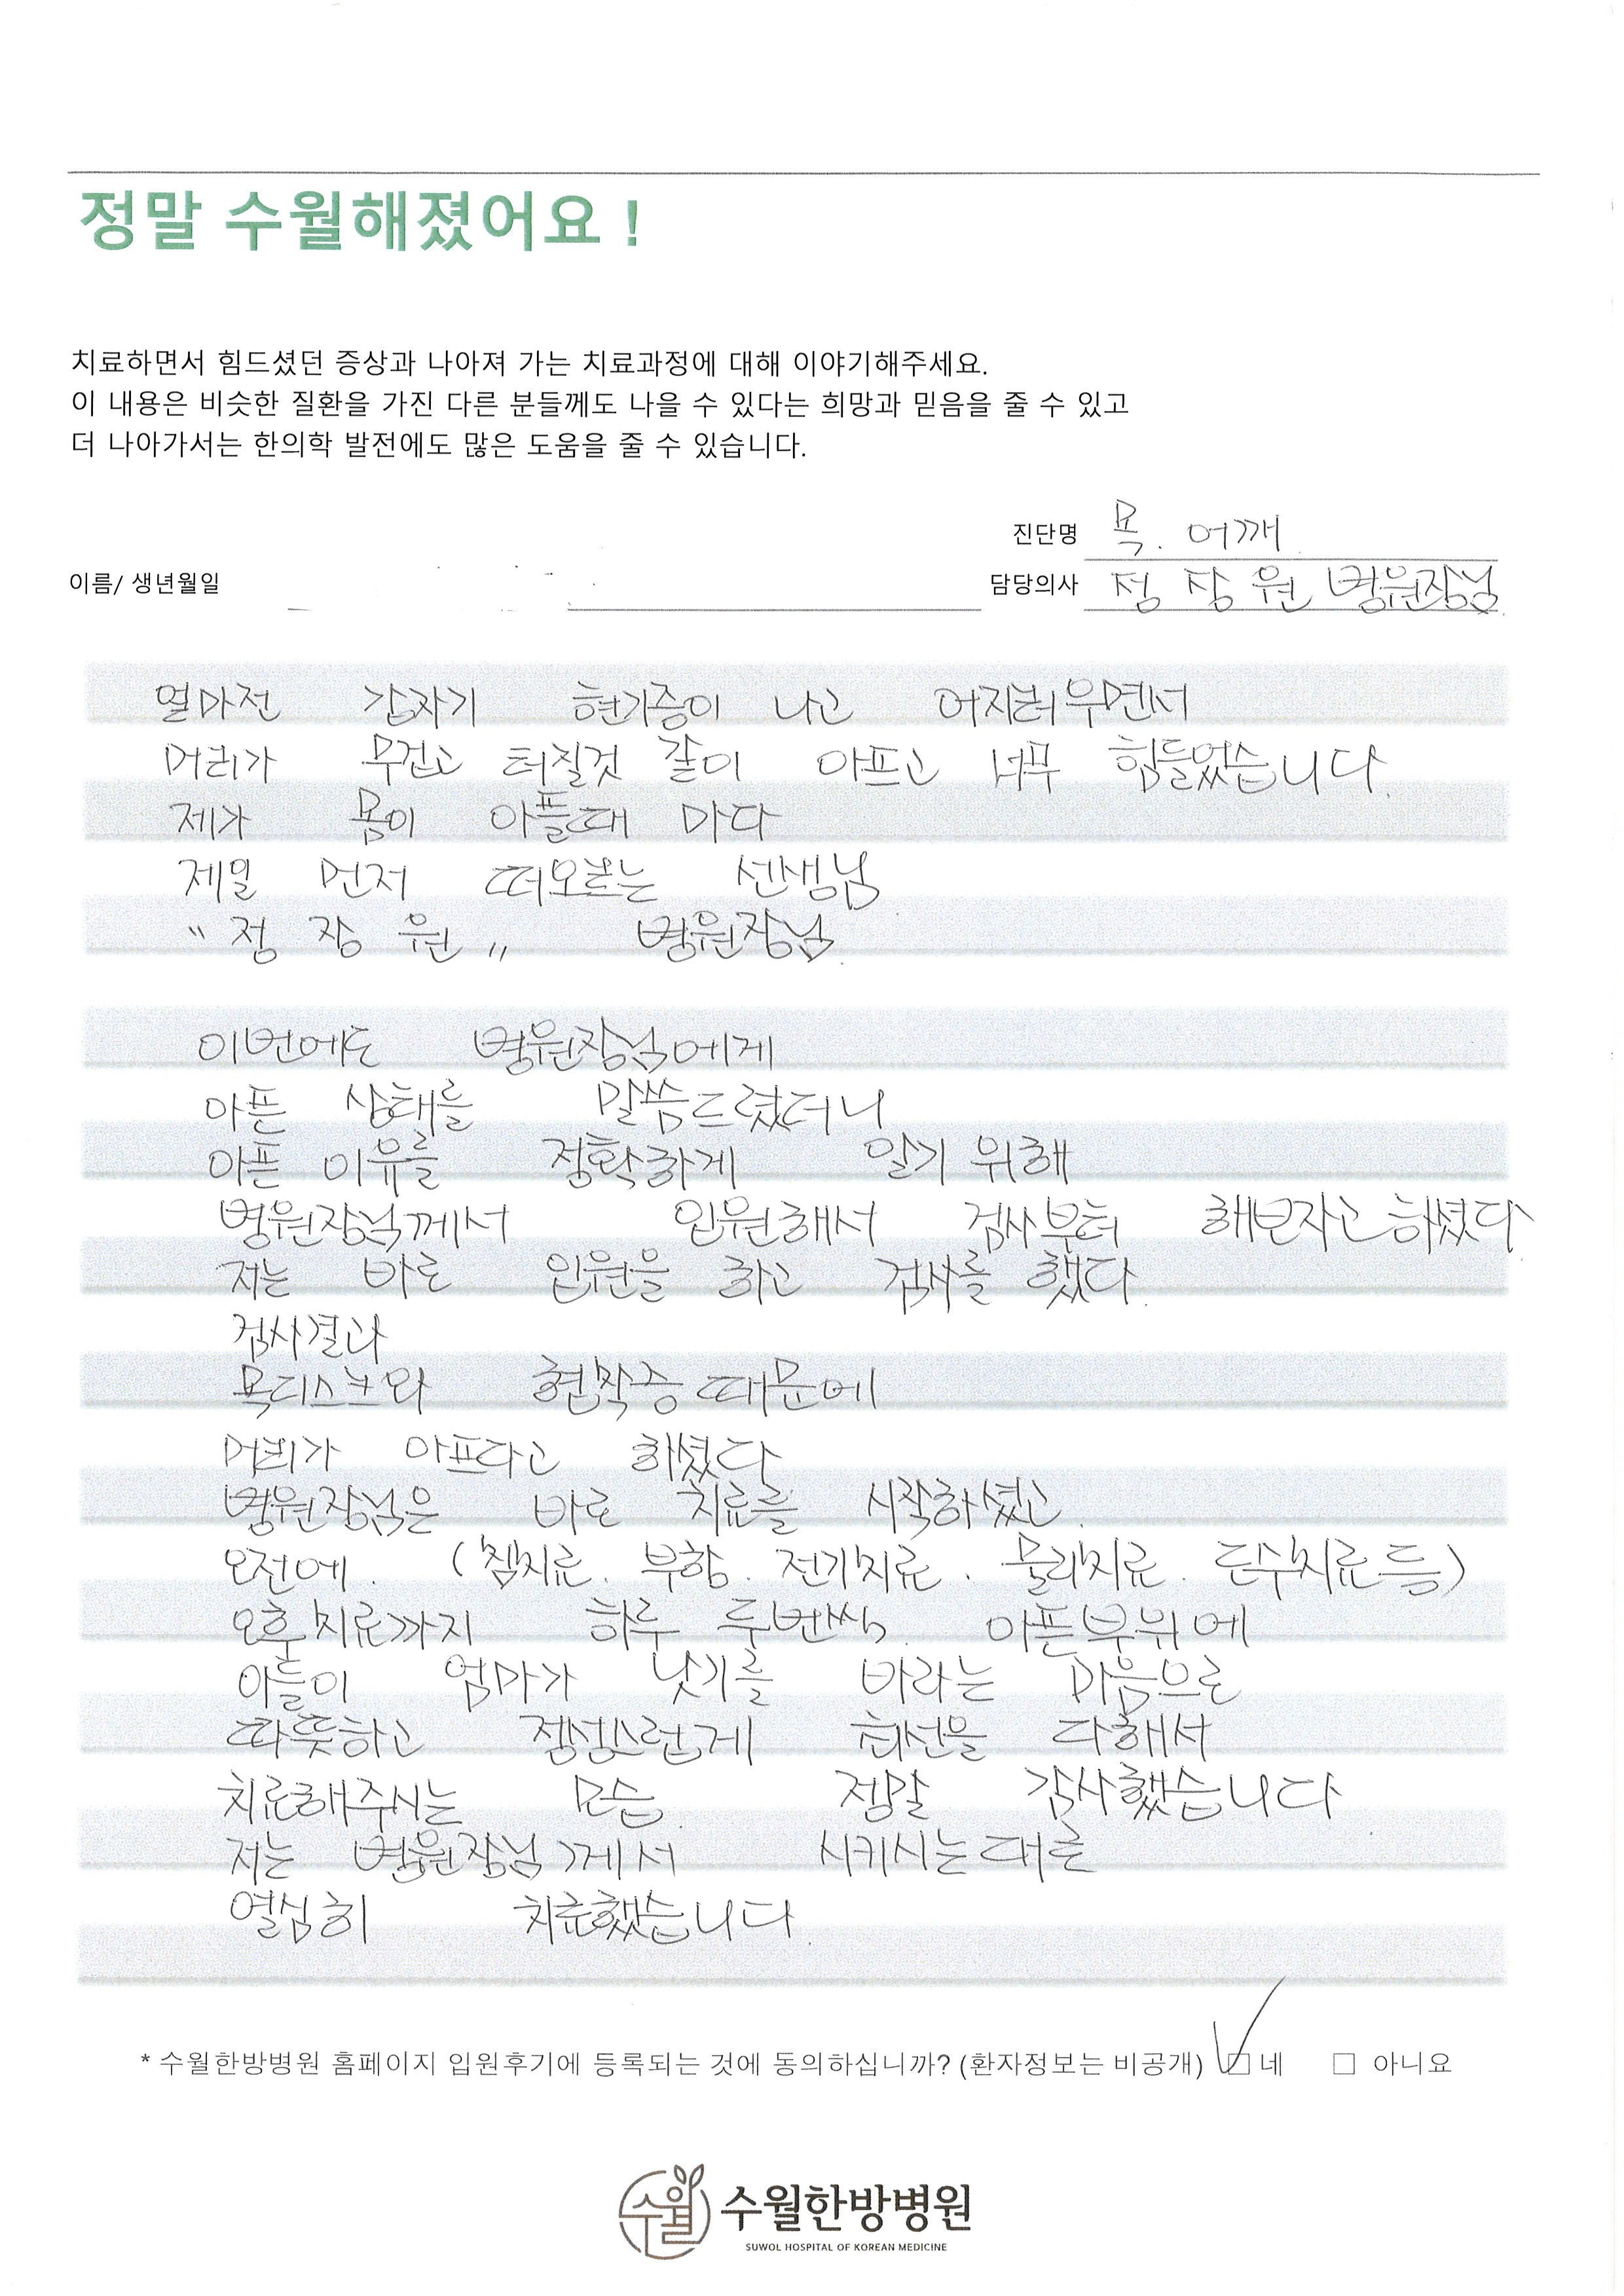 정말 수월해졌어요 !
치료하면서 힘드셨던 증상과 나아져 가는 치료과정에 대해 이야기해주세요.
이 내용은 비슷한 질환을 가진 다른 분들께도 나을 수 있다는 희망과 믿음을 줄 수 있고
더 나아가서는 한의학 발전에도 많은 도움을 줄 수 있습니다.
진단명 목. 어깨
이름/ 생년월일 담당의사 정 장 원 병원장님
얼마전 갑자기 현기증이 나고 어지러우면서
머리가 무겁고 터질것 같이 아프고 너무 힘들었습니다.
제가 몸이 아플때 마다
제일 먼저 떠오르는 선생님
“정 장 원” 병원장님.
이번에도 병원장님에게
아픈 상태를 말씀드렸더니
아픈 이유를 정확하게 알기 위해
병원장님께서 입원해서 검사부터 해보자고 하셨다.
저는 바로 입원을 하고 검사를 했다.
검사결과
목디스크와 협착증 때문에
머리가 아프다고 하셨다
병원장님은 바로 치료를 시작하셨고.
오전에. (침치료. 부항. 전기치료. 물리치료. 도수치료 등)
오후치료까지 하루 두번씩. 아픈부위에
아들이 엄마가 낫기를 바라는 마음으로
따뜻하고 정성스럽게 최선을 다해서
치료해주시는 모습. 정말 감사했습니다
저는 병원장님께서 시키시는대로
열심히 치료했습니다.
* 수월한방병원 홈페이지 입원후기에 등록되는 것에 동의하십니까? (환자정보는 비공개) ☑ 네 □ 아니요
수월 수월한방병원
SUWOL HOSPITAL OF KOREAN MEDICINE